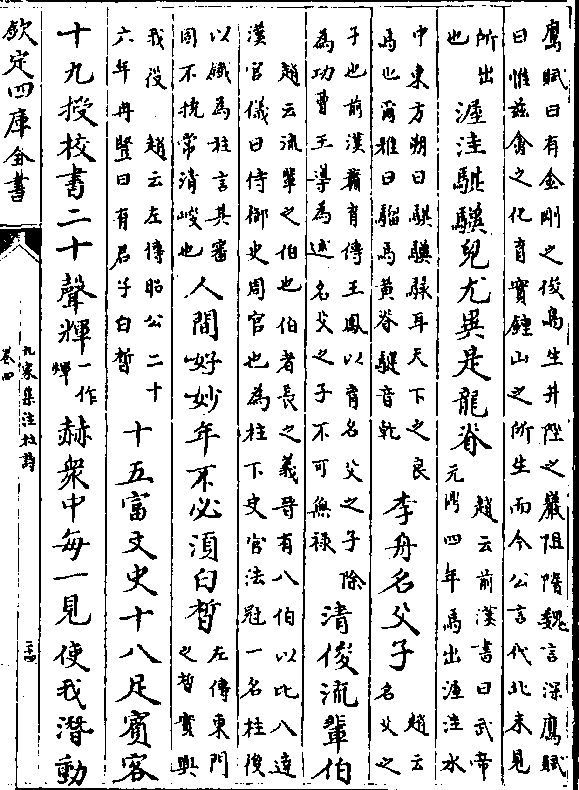 鷹賦曰有金剛之俊鳥生井陘之巖阻隋魏言深鷹賦
曰惟兹禽之化育實鍾山之所生而今公言代北未見
所出
也
渥洼騏驥兒尤異是龍脊
趙云前漢書曰武帝
元鼎四年馬出渥洼水
中東方朔曰騏驥騄耳天下之良
馬也爾雅曰騮馬黃脊騝音乾
李舟名父子
趙云
名父之
子也前漢蕭育傳王鳳以育名父之子除
為功曹王導為述名父之子不可無祿
清俊流輩伯
趙云流輩之伯也伯者長之義晉有八伯以比八達
漢官儀曰侍御史周官也為柱下史官法冠一名柱後
以鐵為柱言其審
固不撓常清峻也
人間好妙年不必須白晳
左傳東門
之晳實興
我役 趙云左傳昭公二十
六年冉豎曰有君子白晳
十五富文史十八足賓客
十九授校書二十聲輝
一作
煇
赫衆中每一見使我潛動
欽定四庫全書
九家集注杜詩
卷四
二十四